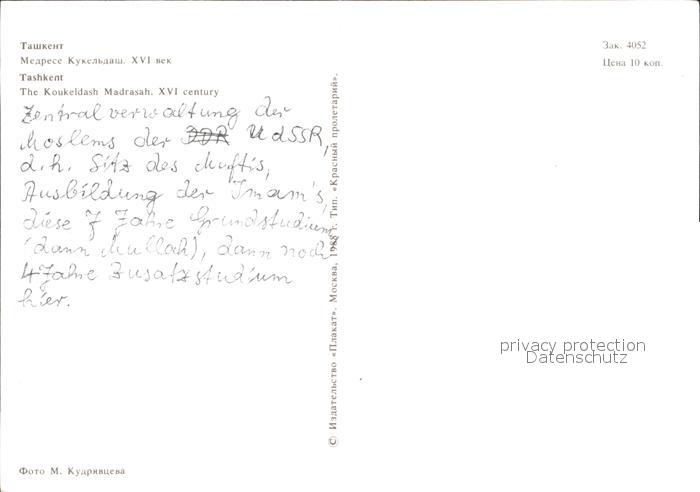 Ташкент
Медресе Кукельдаш. XVI век
Tashkent
The Koukeldash Madrasah. XVI century
Zentralverwaltung der
Moslems der DDR UdSSR,
d.h. Sitz des Muftis,
Ausbildung der Imam's,
diese 7 Jahre Grundstudium
(dann Mullah), dann noch
4 Jahre Zusatzstudium
hier.
Фото М. Кудрявцева
© Издательство «Плакат». Москва, 1988 г. Тип. «Красный пролетарий».
Зак. 4052
Цена 10 коп.
privacy protection
Datenschutz